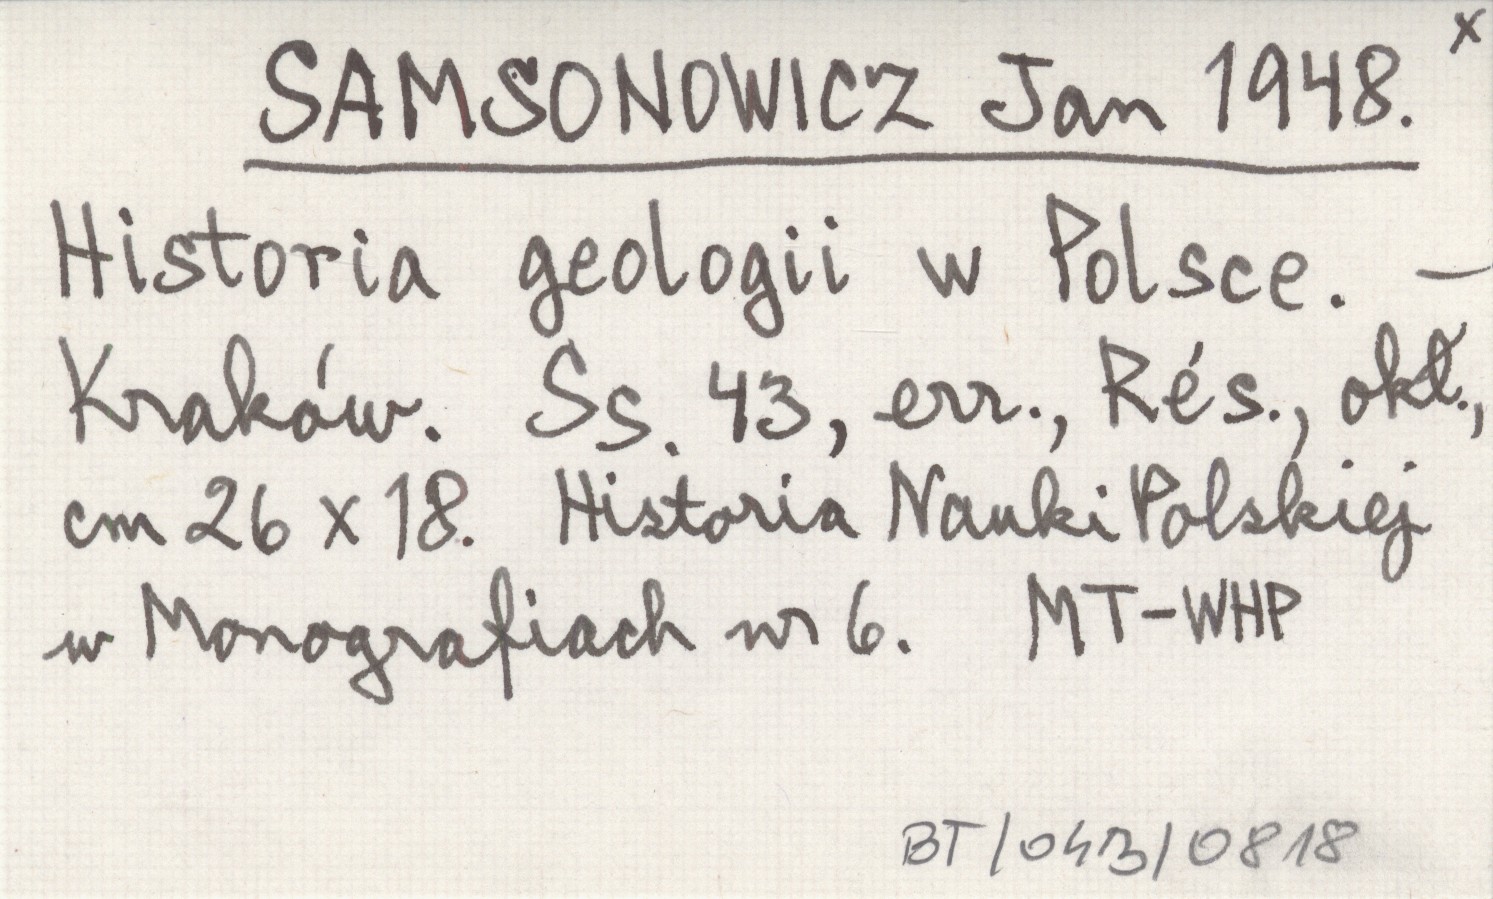 x
SAMSONOWICZ Jan 1948.
Historia geologii w Polsce. —
Kraków. Ss. 43, err., Rés., okł.,
cm 26 x 18. Historia Nauki Polskiej
w Monografiach nr 6. MT-WHP
BT/043/0818